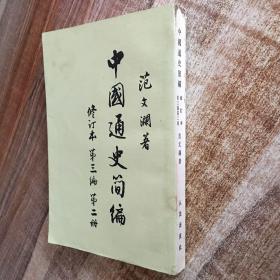 范文澜著
中國通史简编
修订本 第三编 第二册
中國通史简编
范文澜著
人民出版社